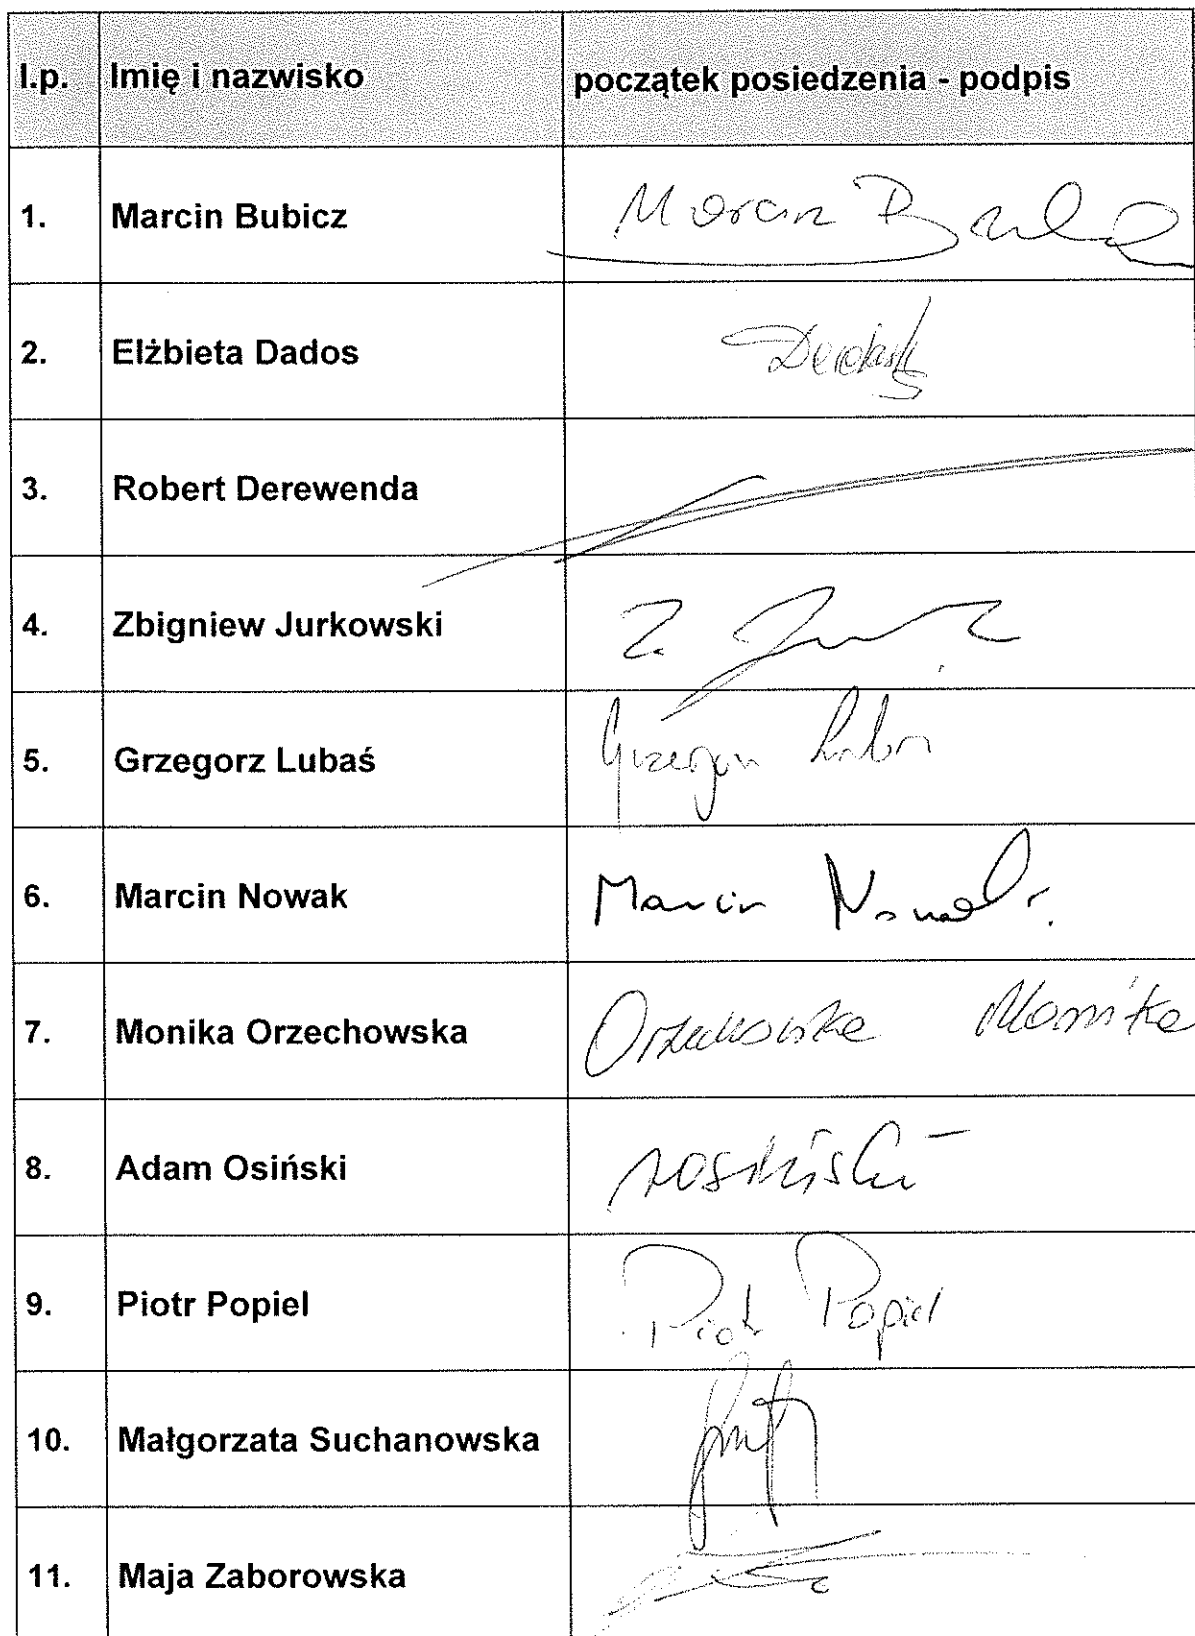 l.p. Imię i nazwisko początek posiedzenia - podpis
1. Marcin Bubicz Marcin
2. Elżbieta Dados
3. Robert Derewenda
4. Zbigniew Jurkowski Z.
5. Grzegorz Lubaś Grzegorz
6. Marcin Nowak Marcin Nowak
7. Monika Orzechowska Orzechowska Monika
8. Adam Osiński
9. Piotr Popiel Piotr Popiel
10. Małgorzata Suchanowska
11. Maja Zaborowska